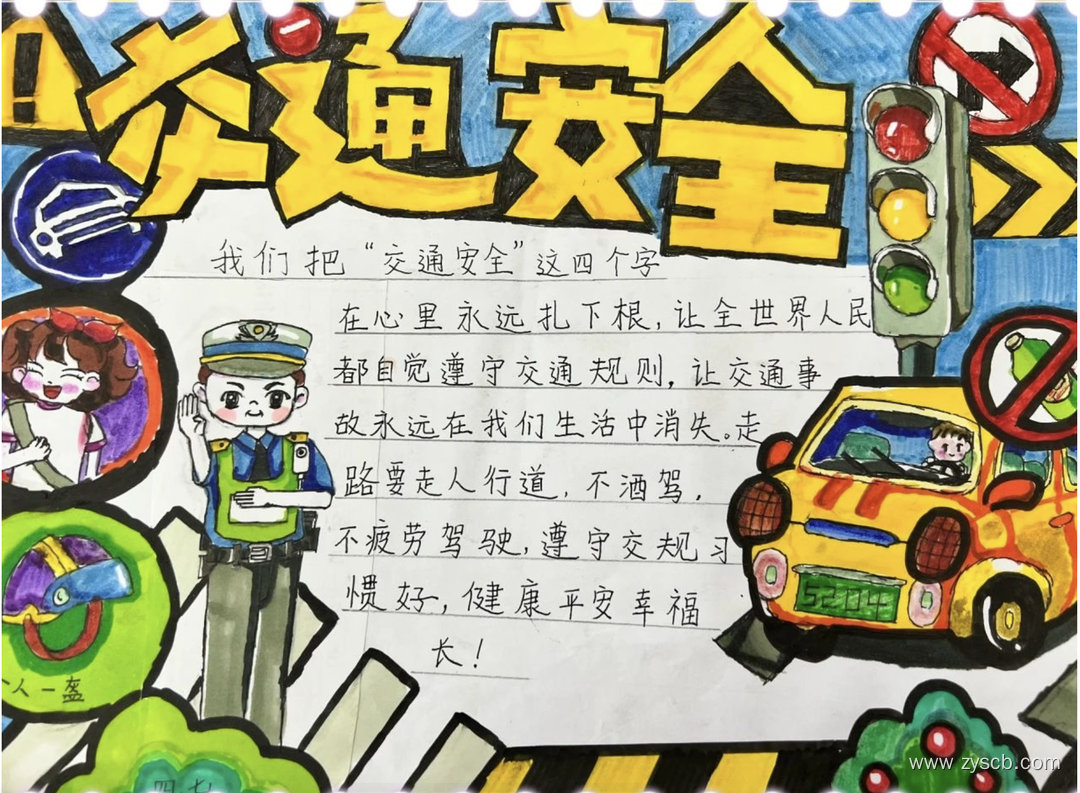 交通安全
我们把“交通安全”这四个字
在心里永远扎下根,让全世界人民
都自觉遵守交通规则,让交通事
故永远在我们生活中消失。走
路要走人行道,不酒驾,
不疲劳驾驶,遵守交规习
惯好,健康平安幸福
长!
5204
人一盔
www.zyscb.com